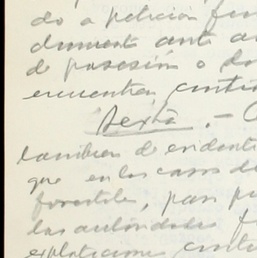 do a petición fun
dumente ante au
de posesión o do
encuentra conti
Sexta. –
tambien de evidente
que en los casos de
forestales, para
las autoridades f
explotaciones contin